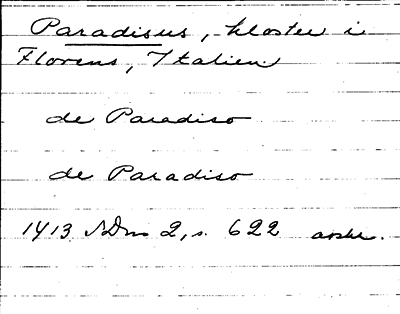 Paradisus, kloster i
Florens, Italien
de Paradiso
de Paradiso
1413 SDns 2, s. 622 avskr.